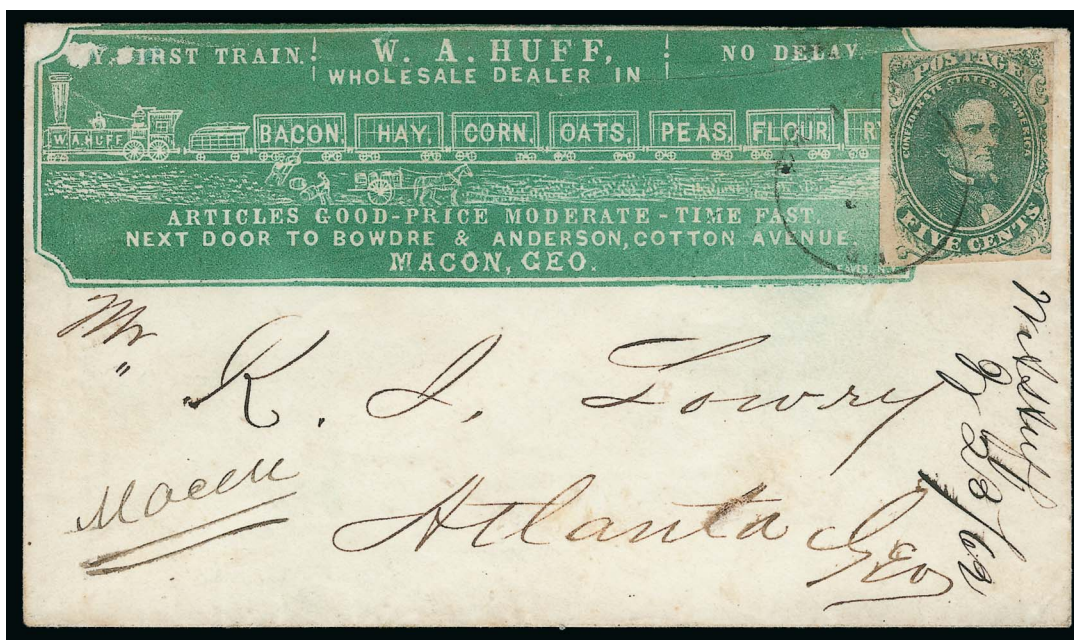 BY FIRST TRAIN. W. A. HUFF, NO DELAY.
WHOLESALE DEALER IN
W. A. HUFF BACON. HAY. CORN. OATS. PEAS. FLOUR. RY
ARTICLES GOOD-PRICE MODERATE-TIME FAST.
NEXT DOOR TO BOWDRE & ANDERSON, COTTON AVENUE.
MACON, GEO.
POSTAGE
CONFEDERATE STATES OF AMERICA
FIVE CENTS
Mr
K. J. Lowry
Macon
Atlanta Geo
28/62